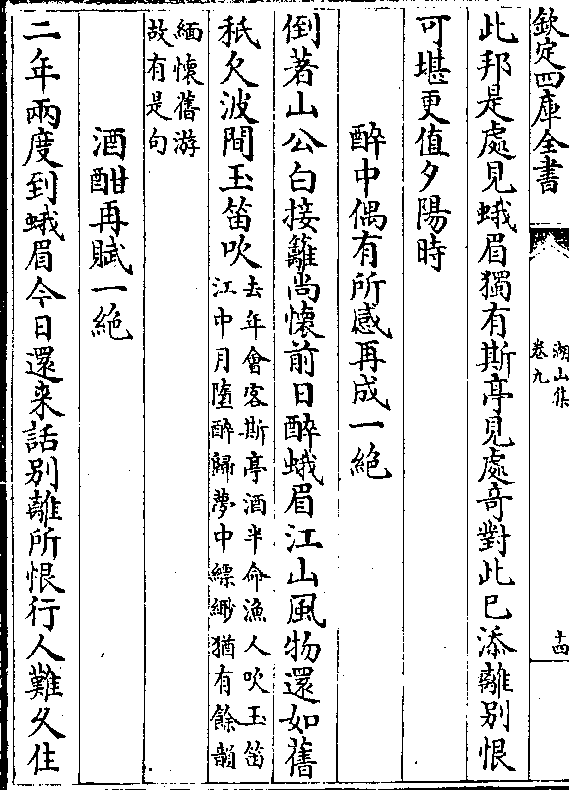 欽定四庫全書
湖山集
卷九
十四
此邦是處見蛾眉獨有斯亭見處竒對此已添離别恨
可堪更值夕陽時
醉中偶有所感再成一絶
倒著山公白接籬尚懷前日醉蛾眉江山風物還如舊
秪欠波間玉笛吹
去年會客斯亭酒半命漁人吹玉笛
江中月墮醉歸夢中縹緲猶有餘韻
緬懷舊游
故有是句
酒酣再賦一絶
二年兩度到蛾眉今日還来話别離所恨行人難久住